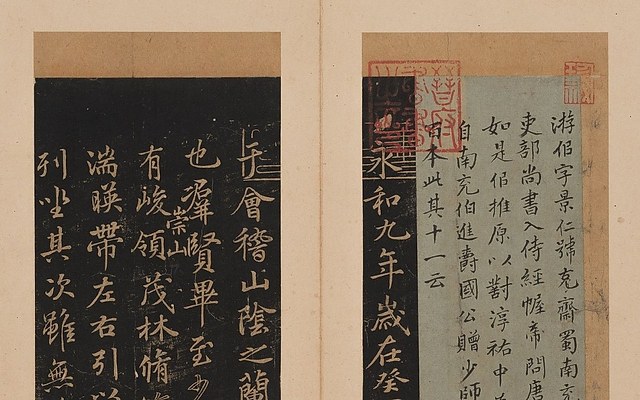 游佀字景仁號克齋蜀南充
吏部尚書入侍經幄帝問唐
如是佀推原以對淳祐中
自南充伯進爵國公贈少師
百本此其十一云
永和九年歲在癸
于會稽山陰之蘭
也羣賢畢至少
崇山
有峻領茂林脩
湍暎帶左右引以
列坐其次雖無